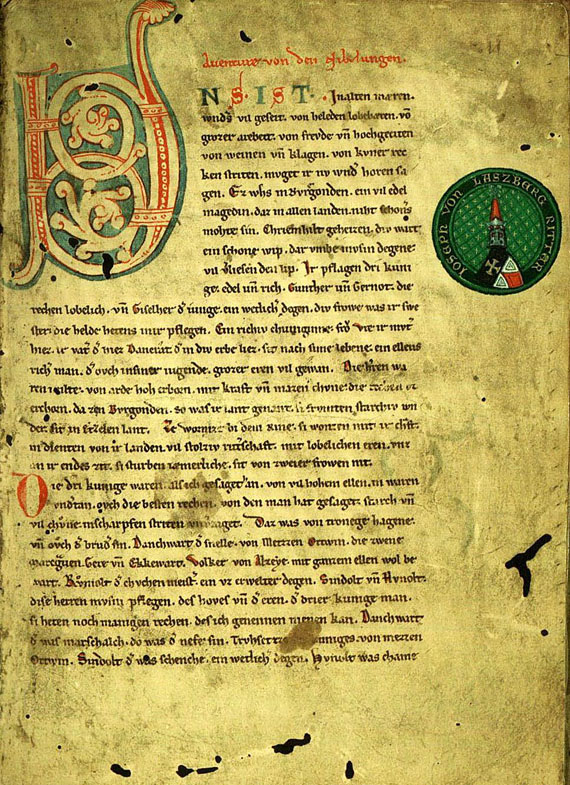 Aventure von den Nibelungen.
VNS. IST. In alten mæren.
wnds vil geseit. von heleden lobebæren. võ
grozer arebeit. von frevde vñ hochgeciten
von weinen vñ klagen. von kvner rec
ken striten. mvget ir nv wnd horen sa
gen. Ez whs in Bvrgonden. ein vil edel
magedin. daz in allen landen. niht schoñs
mohte sin. Chriemhilt geheizen. div wart
ein schone wip. dar vmbe mvsin degene
vil vliesen den lip. Ir pflagen dri kuni
ge. edel vñ rich. Gunther vñ Gernot. die
rechen lobelich. vñ Giselher d iunge. ein wetlich degen. div frowe was ir swe
ster. die helde hetens inir pflegen. Ein richiv chuniginne. frŏ Vte ir mvt
hiez. ir vat d hiez Dancrat. d in div erbe liez. sit nach sime lebene. ein ellens
rich man. d ovch in siner iugende. grozer eren vil gewan. Die hren wa
ren milte. von arde hoh erborn. mit kraft vñ mazen chvne. die rechen vz
erchorn. da zen Bvrgonden. so was ir lant genant. si frvmten starchiv wn
der. sit in Etzelen lant. Ze Wormze bi dem Rine. si wonten mit ir chft.
in dienten von ir landen. vil stolziv ritschaft. mit lobelichen eren. vnz
an ir endes zit. si sturben iæmerliche. sit von zweier frowen nit.
Die dri kunige waren. als ich gesaget han. von vil hohem ellen. in waren
vndtan. ovch die besten rechen. von den man hat gesaget. starch vñ
vil chvne. in scharpfen striten vnvzaget. Daz was von tronege hagene.
vñ ovch d brud sin. Danchwart d snelle. von Metzen Ortwin. die zwene
maregven. Gere vñ Ekkewart. Volker von Alzeye. mit ganzem ellen wol be
wart. Rvmolt d chvchen meist. ein vz erwelter degen. Sindolt vñ Hvnolt.
dise herren mvsin pflegen. des hoves vñ d eren. d drier kunige man.
si heten noch manigen rechen. des ich genennen nienen kan. Danchwart
d was marschalch. do was d nefe sin. Trvhsetze des kuniges. von Metzen
Ortwin. Sindolt d was schenche. ein wetlich degen. Hvnolt was chame
IOSEPH VON LASZBERG RITTER